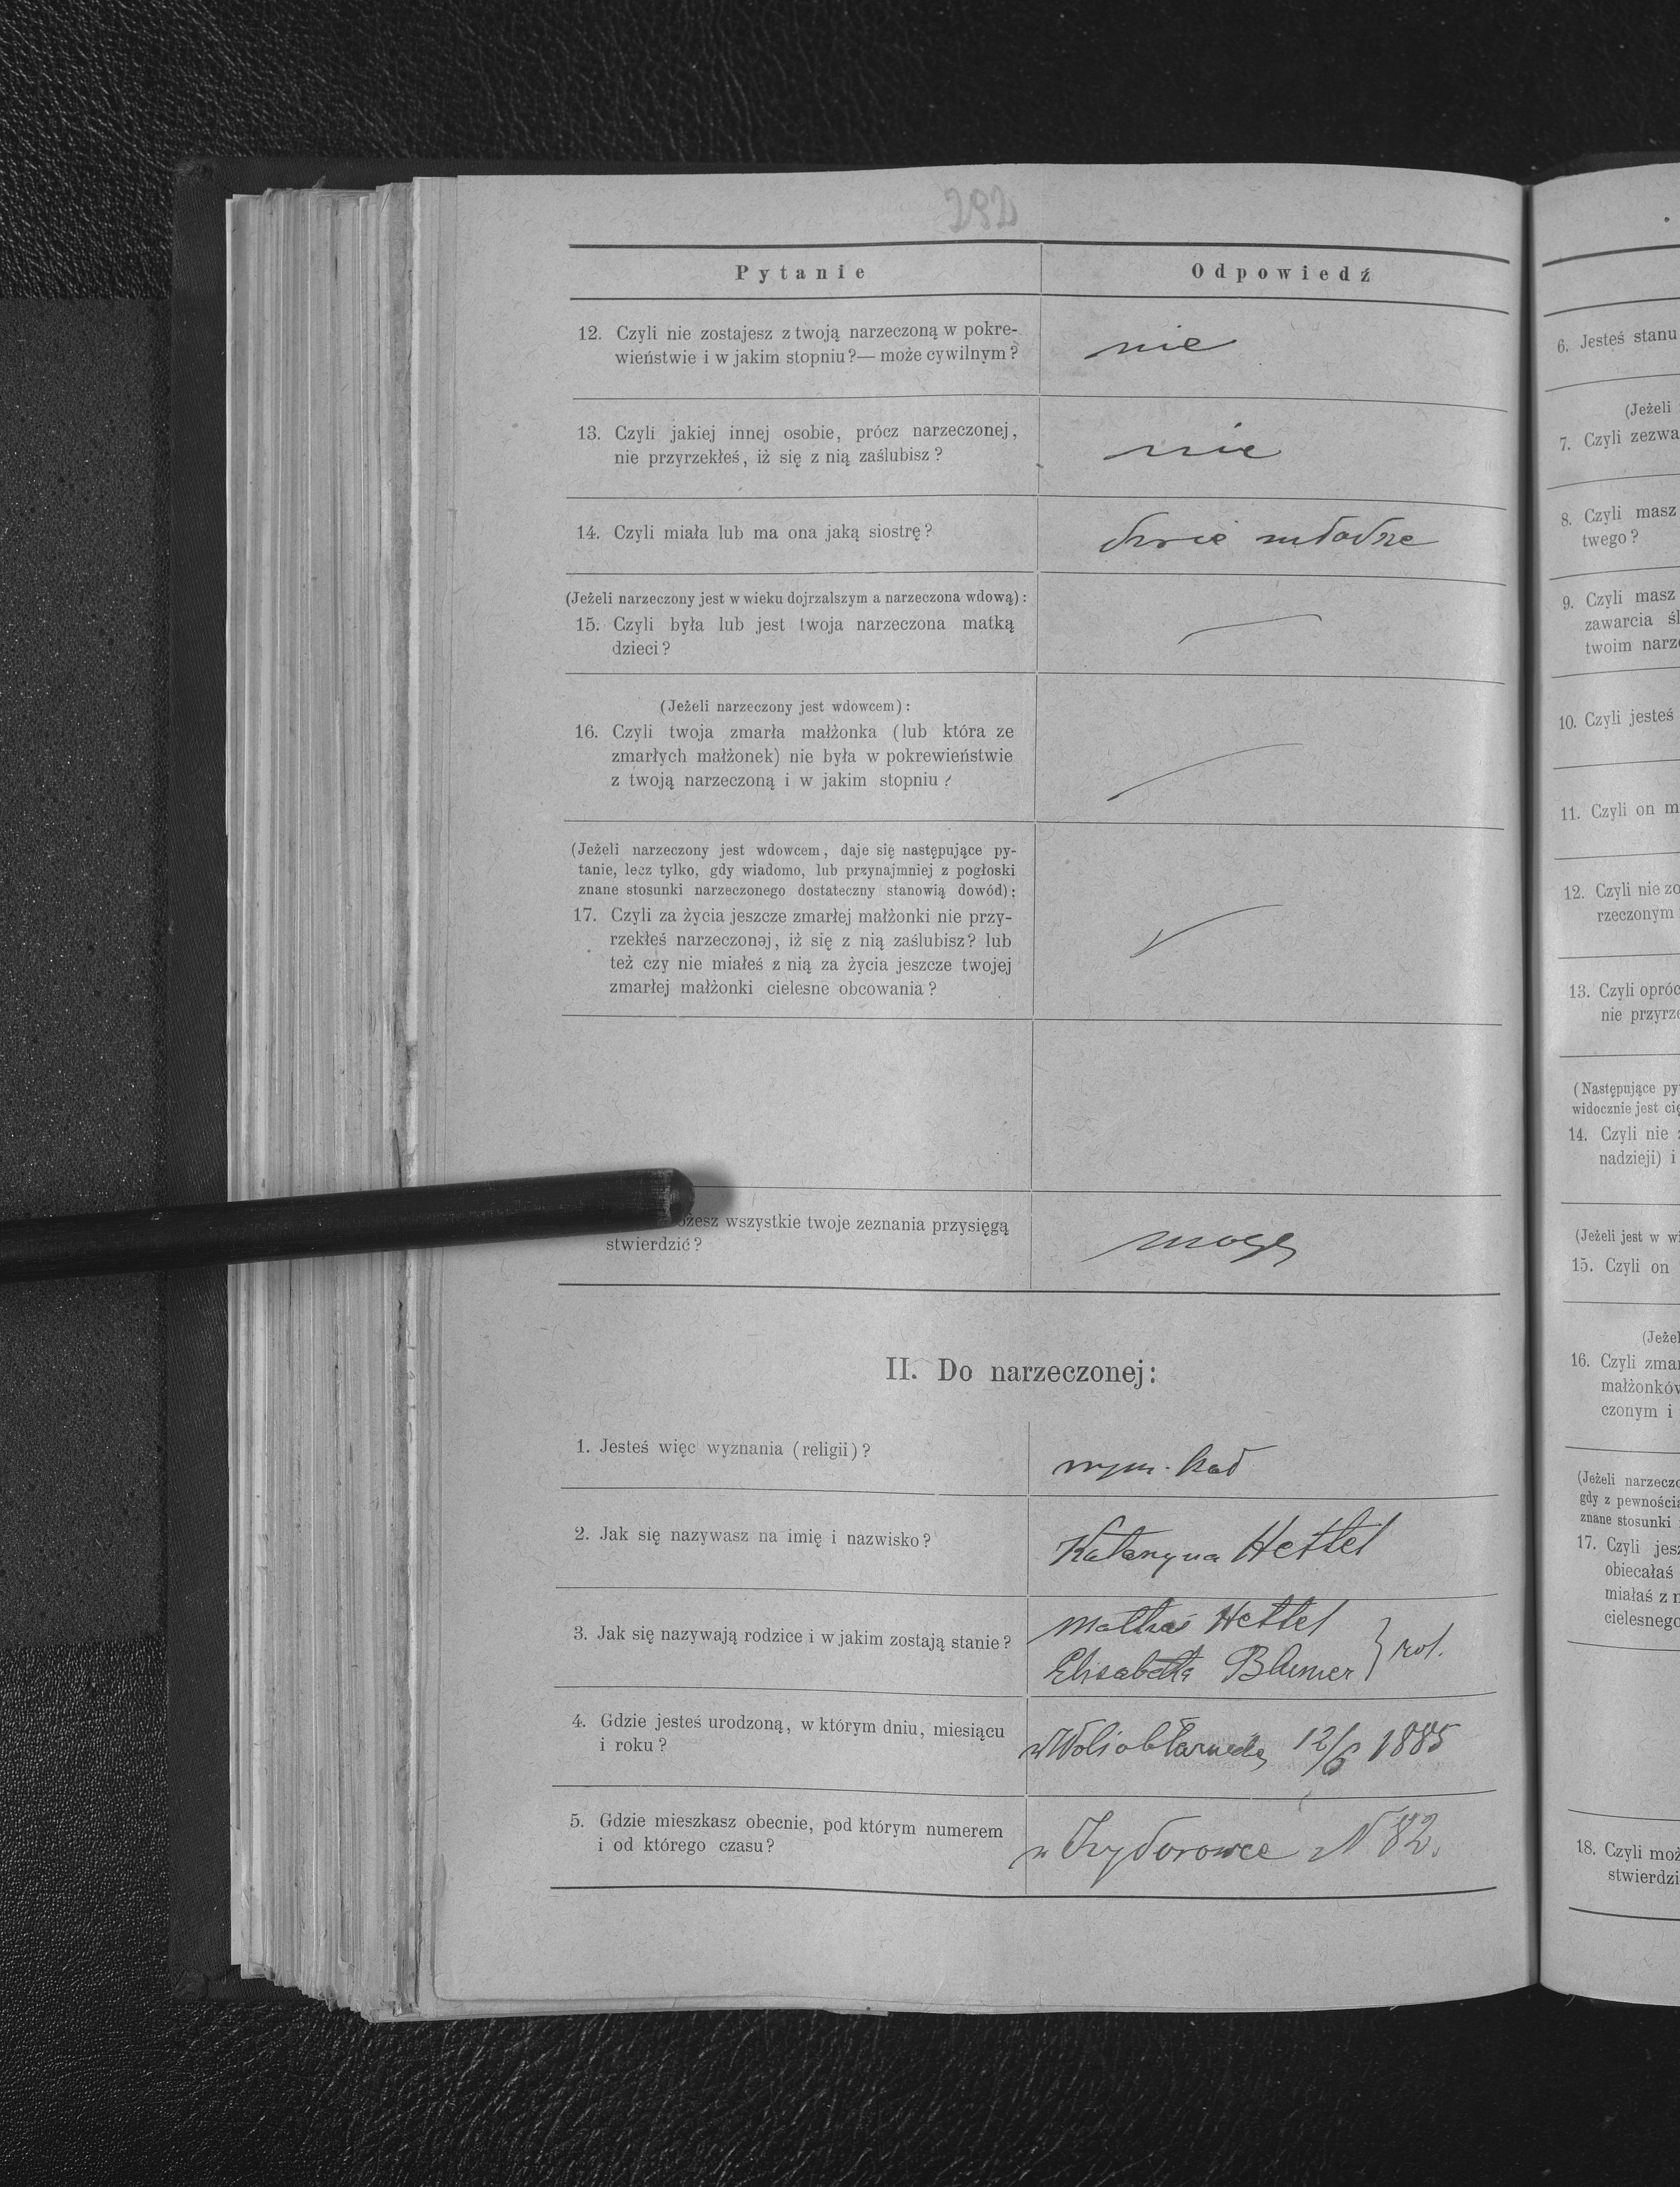 282
Pytanie
Odpowiedź
12. Czyli nie zostajesz z twoją narzeczoną w pokre-
wieństwie i w jakim stopniu?— może cywilnym?
nie
13. Czyli jakiej innej osobie, prócz narzeczonej,
nie przyrzekłeś, iż się z nią zaślubisz?
nie
14. Czyli miała lub ma ona jaką siostrę?
dwie młodsze
(Jeżeli narzeczony jest w wieku dojrzalszym a narzeczona wdową):
15. Czyli była lub jest twoja narzeczona matką
dzieci?
(Jeżeli narzeczony jest wdowcem):
16. Czyli twoja zmarła małżonka (lub która ze
zmarłych małżonek) nie była w pokrewieństwie
z twoją narzeczoną i w jakim stopniu?
(Jeżeli narzeczony jest wdowcem, daje się następujące py-
tanie, lecz tylko, gdy wiadomo, lub przynajmniej z pogłoski
znane stosunki narzeczonego dostateczny stanowią dowód):
17. Czyli za życia jeszcze zmarłej małżonki nie przy-
rzekłeś narzeczonej, iż się z nią zaślubisz? lub
też czy nie miałeś z nią za życia jeszcze twojej
zmarłej małżonki cielesne obcowania?
ożesz wszystkie twoje zeznania przysięgą
stwierdzić?
mogę
II. Do narzeczonej:
1. Jesteś więc wyznania (religii)?
rzym. kat
2. Jak się nazywasz na imię i nazwisko?
Katarzyna Hettel
3. Jak się nazywają rodzice i w jakim zostają stanie?
Mathias Hettel
Elisabetha Blumer } rol.
4. Gdzie jesteś urodzoną, w którym dniu, miesiącu
i roku?
w Woli 12/6 1885
5. Gdzie mieszkasz obecnie, pod którym numerem
i od którego czasu?
w Izydorowce N 82.
6. Jesteś stanu
(Jeżeli
7. Czyli zezwa
8. Czyli masz
twego?
9. Czyli masz
zawarcia śl
twoim narze
10. Czyli jesteś
11. Czyli on m
12. Czyli nie zo
rzeczonym
13. Czyli opróc
nie przyrze
(Następujące py
widocznie jest cię
14. Czyli nie
nadzieji) i
(Jeżeli jest w wi
15. Czyli on
(Jeżel
16. Czyli zmar
małżonków
czonym i
(Jeżeli narzeczo
gdy z pewnością
znane stosunki
17. Czyli jesz
obiecałaś
miałaś z n
cielesnego
18. Czyli moż
stwierdzi